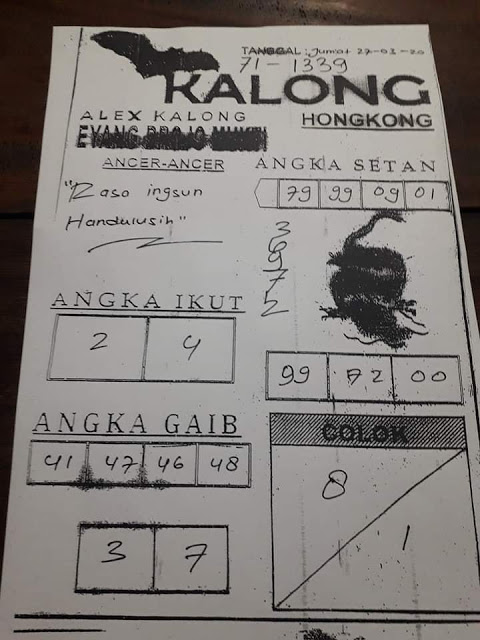 TANGGAL : Jumat 27-03-20
71 - 1339
KALONG
ALEX KALONG
HONGKONG
EYANG BROJO MUKTI
ANCER-ANCER
ANGKA SETAN
"Raso ingsun
Handulusih"
79 99 09 01
3
6
9
7
2
ANGKA IKUT
2 4
99 72 00
ANGKA GAIB
41 47 46 48
COLOK
8
1
3 7